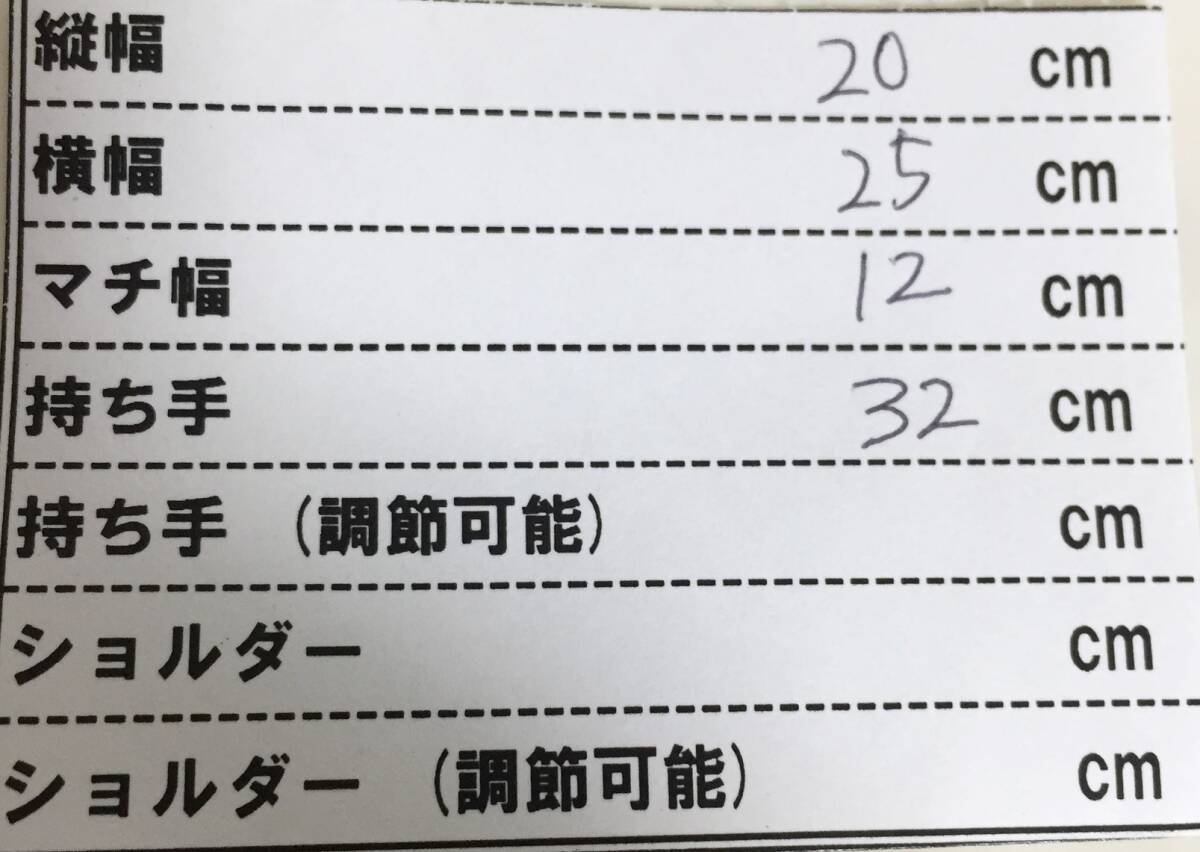 縦幅 20 cm
横幅 25 cm
マチ幅 12 cm
持ち手 32 cm
持ち手 (調節可能) cm
ショルダー cm
ショルダー (調節可能) cm